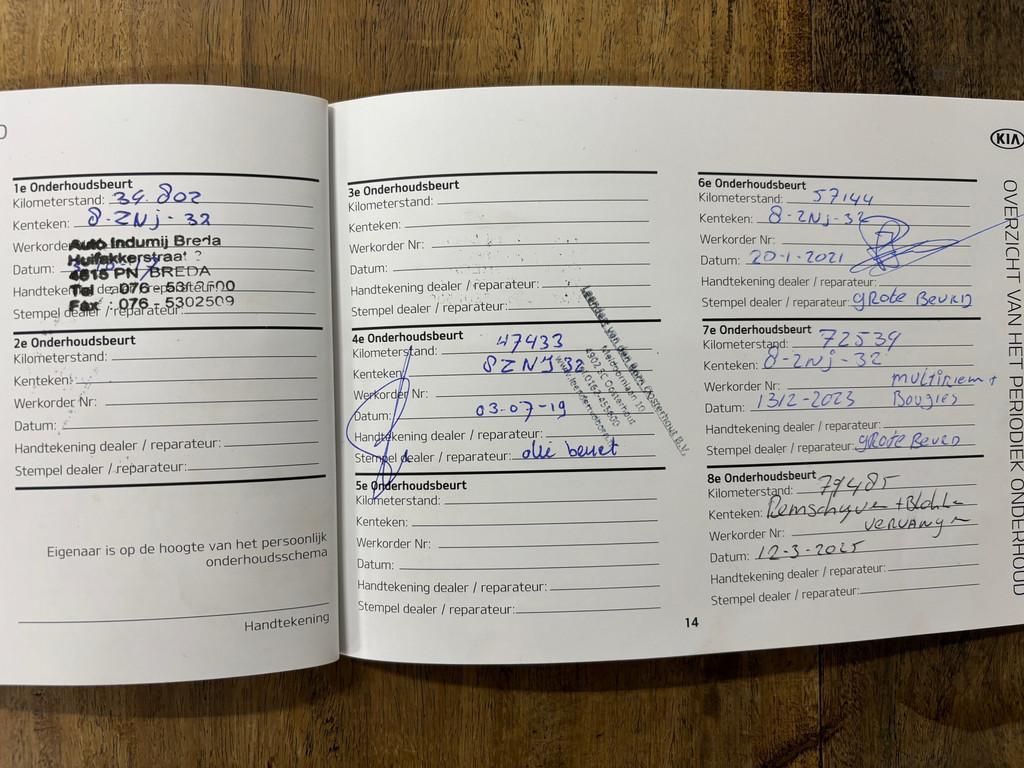 1e Onderhoudsbeurt
Kilometerstand: 34.802
Kenteken: 8-ZNJ-32
Werkorder
Auto Indumij Breda
Huifakkerstraat
Datum:
4815 PN BREDA
Handtekening dealer / reparateur:
Tel : 076 -
Fax : 076 - 5302509
Stempel dealer / reparateur:
2e Onderhoudsbeurt
Kilometerstand:
Kenteken:
Werkorder Nr:
Datum:
Handtekening dealer / reparateur:
Stempel dealer / reparateur:
Eigenaar is op de hoogte van het persoonlijk
onderhoudsschema
Handtekening
3e Onderhoudsbeurt
Kilometerstand:
Kenteken:
Werkorder Nr:
Datum:
Handtekening dealer / reparateur:
Stempel dealer / reparateur:
4e Onderhoudsbeurt
Kilometerstand: 47433
Kenteken: 8ZNJ32
Werkorder Nr:
Datum: 03-07-19
Handtekening dealer / reparateur:
Stempel dealer / reparateur: olie beurt
Leendert van den Born Oosterhout B.V.
Oosterhout
5e Onderhoudsbeurt
Kilometerstand:
Kenteken:
Werkorder Nr:
Datum:
Handtekening dealer / reparateur:
Stempel dealer / reparateur:
14
6e Onderhoudsbeurt
Kilometerstand: 57144
Kenteken: 8-ZNJ-32
Werkorder Nr:
Datum: 20-1-2021
Handtekening dealer / reparateur:
Stempel dealer / reparateur: grote Beurd
7e Onderhoudsbeurt
Kilometerstand: 72539
Kenteken: 8-ZNJ-32
Werkorder Nr: multiriem +
Datum: 1312-2023 Bougies
Handtekening dealer / reparateur:
Stempel dealer / reparateur: grote Beurd
8e Onderhoudsbeurt
Kilometerstand: 79485
Kenteken: Remschyven + Blokke
Werkorder Nr: vervangen
Datum: 12-3-2025
Handtekening dealer / reparateur:
Stempel dealer / reparateur:
KIA
OVERZICHT VAN HET PERIODIEK ONDERHOUD